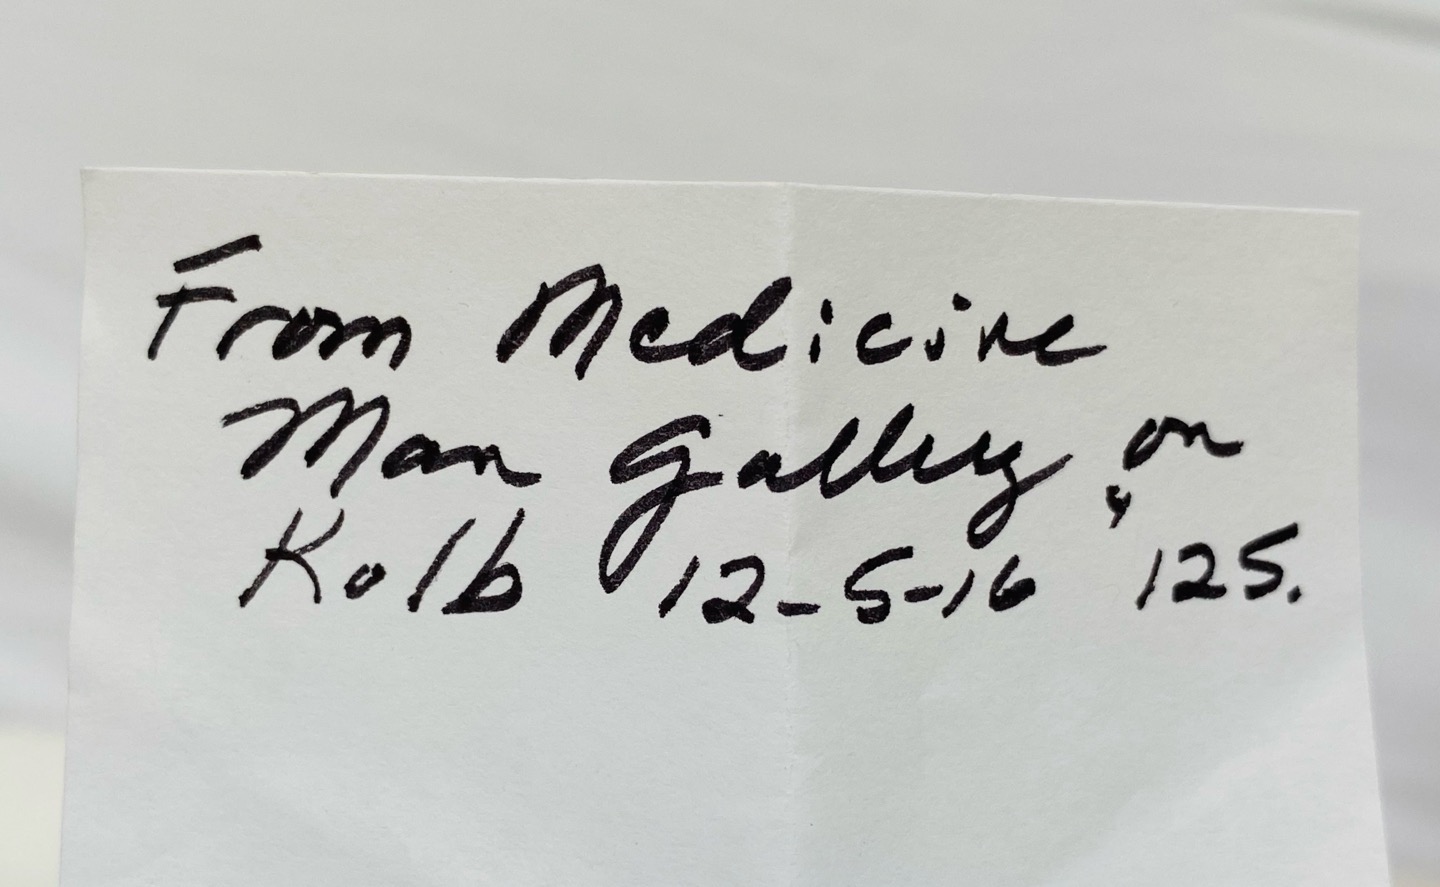 From Medicine
Man Gallery, on
Kolb 12-5-16 125.